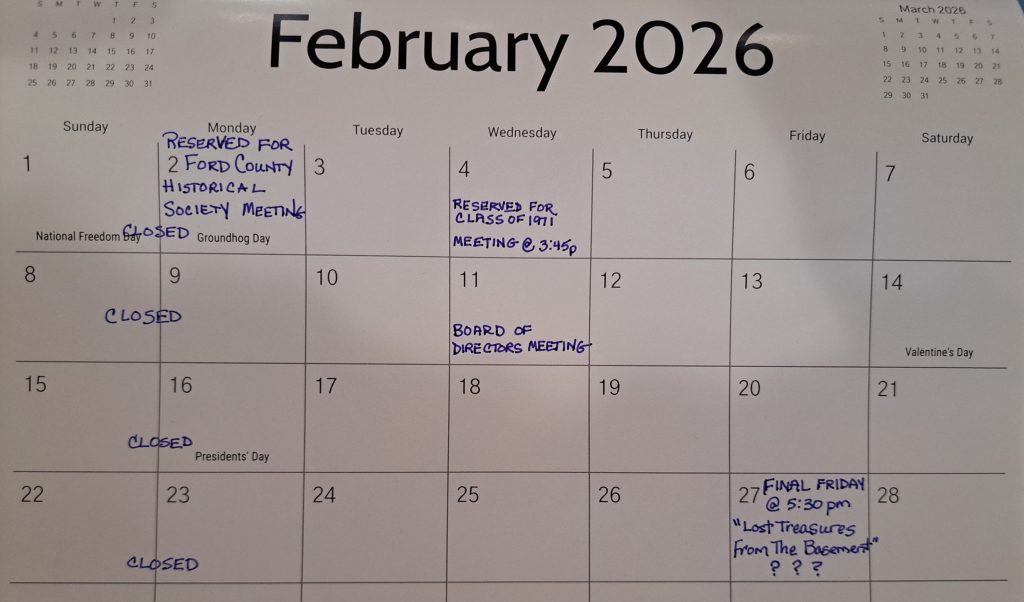 S M T W T F S
1 2 3
4 5 6 7 8 9 10
11 12 13 14 15 16 17
18 19 20 21 22 23 24
25 26 27 28 29 30 31
February 2026
March 2026
S M T W T F S
1 2 3 4 5 6 7
8 9 10 11 12 13 14
15 16 17 18 19 20 21
22 23 24 25 26 27 28
29 30 31
Sunday Monday Tuesday Wednesday Thursday Friday Saturday
1
National Freedom Day
CLOSED
RESERVED FOR
2 FORD COUNTY
HISTORICAL
SOCIETY MEETING
Groundhog Day
3
4
RESERVED FOR
CLASS OF 1971
MEETING @ 3:45p
5
6
7
8
CLOSED
9
10
11
BOARD OF
DIRECTORS MEETING
12
13
14
Valentine's Day
15
CLOSED
16
Presidents' Day
17
18
19
20
21
22
CLOSED
23
24
25
26
27 FINAL FRIDAY
@ 5:30 pm
"Lost Treasures
From The Basement"
? ? ?
28